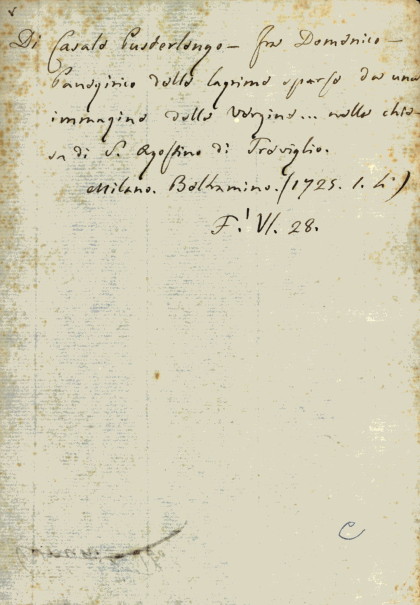 Di Casale Pusterlengo – fra Domenico –
Panegirico delle lagrime sparse da una
immagine della Vergine... nella chie-
sa di S. Agostino di Treviglio.
Milano. Beltramino. (1725. 1. 4.)
F.' VI. 28.
C